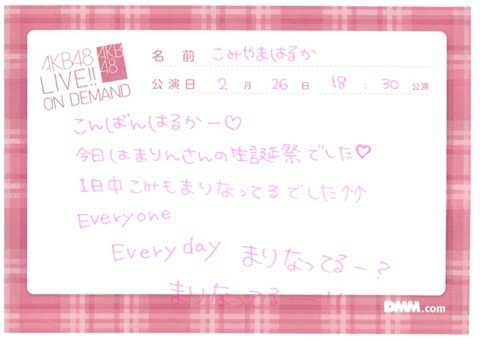 AKB48
LIVE!!
ON DEMAND
AKB
48
名前 こみやまはるか
公演日 2月26日 18:30公演
こんばんはるかー♡
今日はまりんさんの生誕祭でした♥
1日中こみもまりなってるでした↑↑
Everyone
Every day まりなってるー?
まりなってるーーー!!
DMM.com